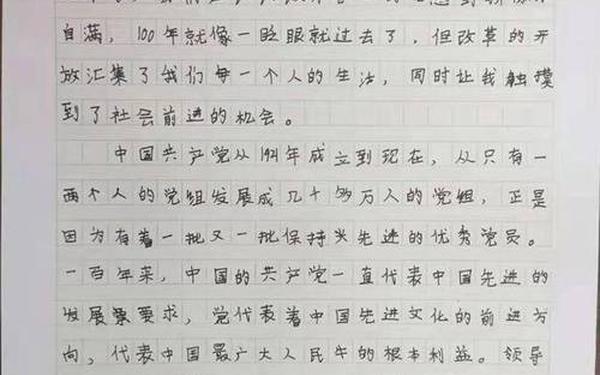 自满，100年就像一眨眼就过去了，但改革的开
放汇集了我们每一个人的生活，同时让我触摸
到了社会前进的机会。
中国共产党从1921年成立到现在，从只有一
两个人的党组发展成几十多万人的党组，正是
因为有着一批又一批保持头先进的优秀党员。
一百年来，中国的共产党一直代表中国先进的
发展要求，党代表着中国先进文化的前进方
向，代表中国最广大人民牛的根本利益。领导